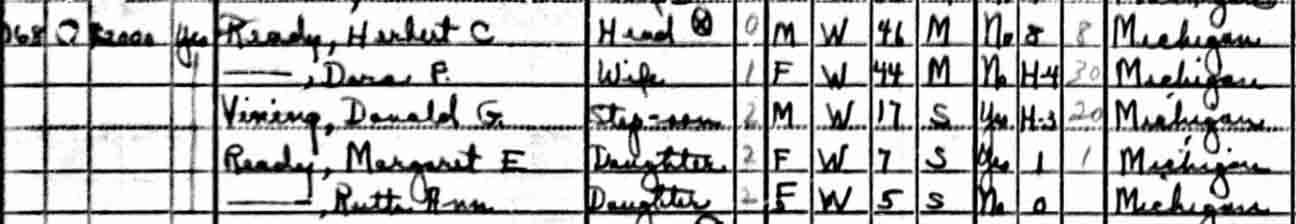 068 O 2000 Yes Ready, Herbert C Head ⓧ 0 M W 46 M No 8 8 Michigan
——, Dora P. Wife 1 F W 44 M No H-4 30 Michigan
Vining, Donald G. Step-son 2 M W 17 S Yes H-3 20 Michigan
Ready, Margaret E Daughter 2 F W 7 S Yes 1 1 Michigan
——, Ruth Ann Daughter 2 F W 5 S No 0 Michigan